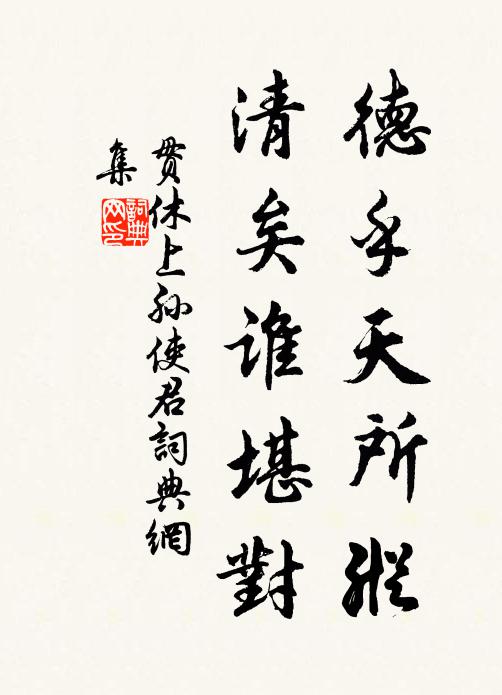 德乎天所縱
清矣谁堪對
贯休上孙使君詞典網
集
詞典
网印